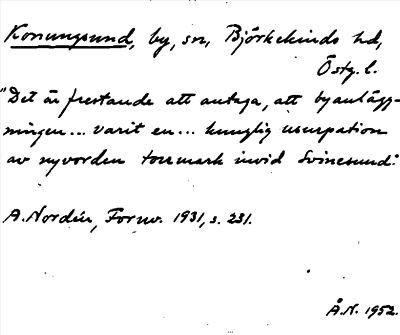 Konungsund, by, sn, Björkekinds hd,
Östg. l.
"Det är frestande att antaga, att byanlägg-
ningen... varit en... kunglig usurpation
av nyvorden torrmark invid Svinesund."
A. Nordén, Fornv. 1931, s. 231.
Å.N. 1952.